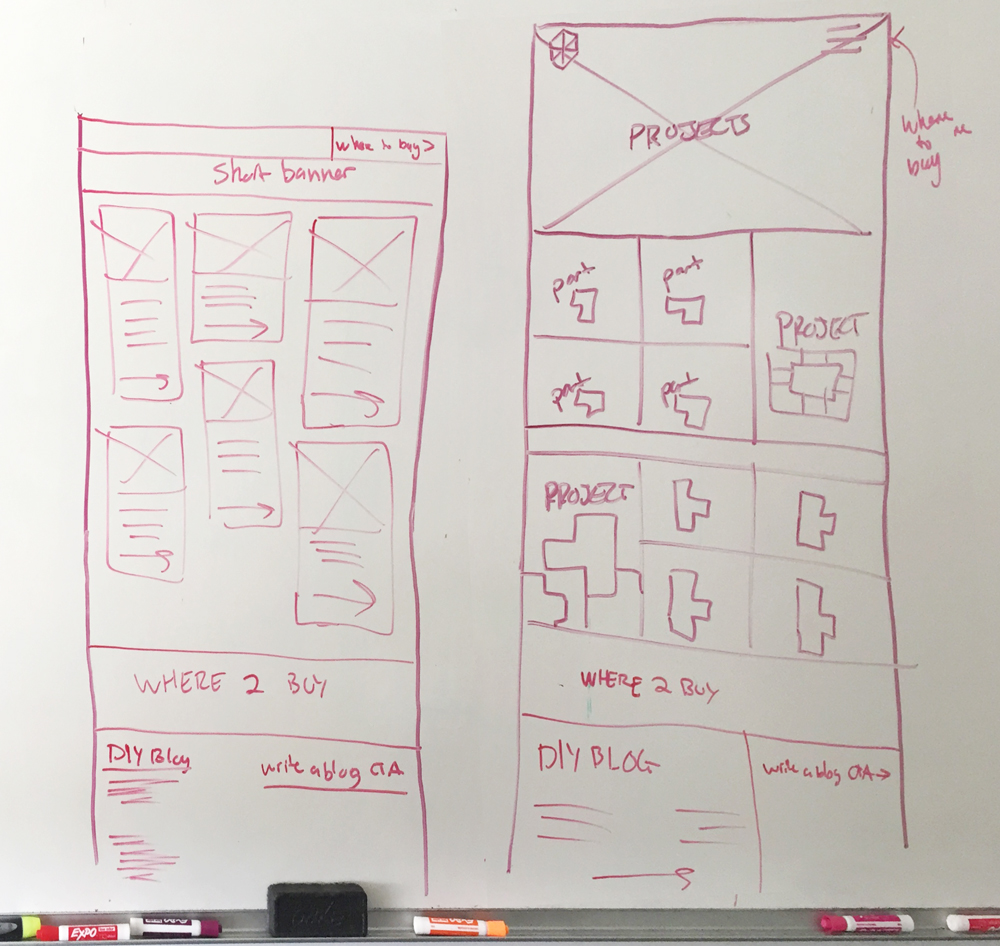 where to buy >
Short banner
WHERE 2 BUY
DIY Blog
write a blog CTA
PROJECTS
where
to
buy
part
part
part
part
PROJECT
PROJECT
WHERE 2 BUY
DIY BLOG
write a blog CTA →
EXPO